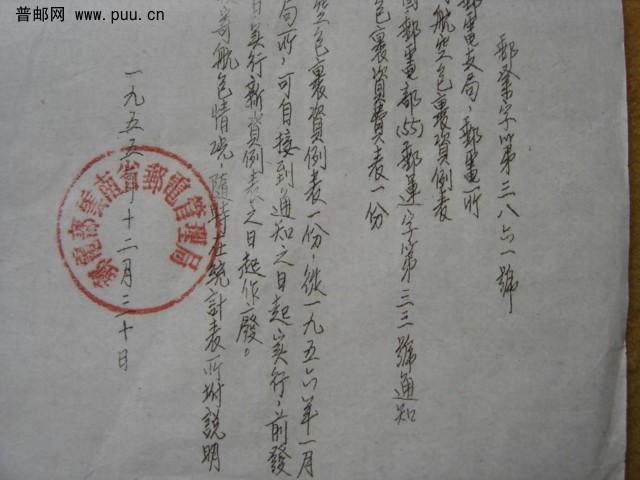 普邮网 www.puu.cn
郵業字第三八六一號
郵電支局，郵電所
航空包裹資例表
郵電部(55)郵運字第二三三號通知
包裹資費表一份
空包裹資例表一份，從一九五六年一月
局所，可自接到通知之日起实行，前發
日实行新資例表之日起作廢。
寄航包情况，隨時在統計表所附說明
一九五五年十二月三十日
郵電部雲南省郵電管理局